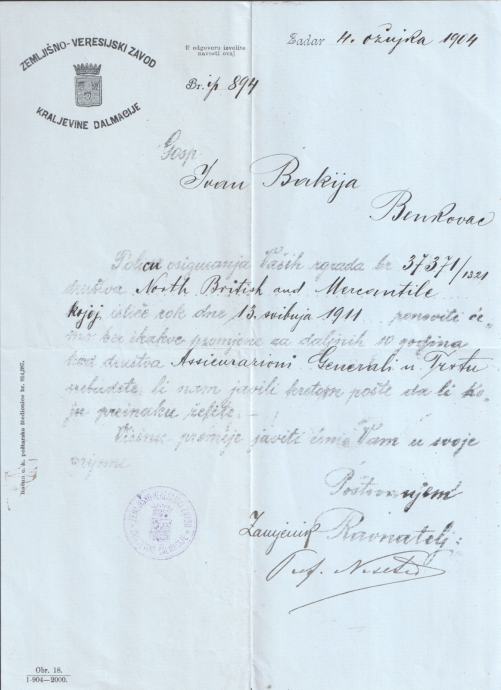 ZEMLJIŠNO-VERESIJSKI ZAVOD
KRALJEVINE DALMACIJE
U odgovoru izvolite
navesti ovaj
Zadar 4. ožujka 1904
Br. ip 894
Gosp.
Ivan Bakija
Benkovac
osiguranja Vaših zgrada br 37371/1321
društva North British and Mercantile
kojoj ističe rok dne 13. svibnja 1911 ponoviti će-
mo bez ikakve promjene za daljnjih 10 godina
kod društva Assicurazioni Generali u Trstu
li nam javili kretom pošte da li ko-
ju preinaku želite.
Visinu premije javiti ćemo Vam u svoje
vrijeme
Poštovanjem
Zamjenik Ravnatelj:
Prof.
Obr. 18.
1-904-2000.